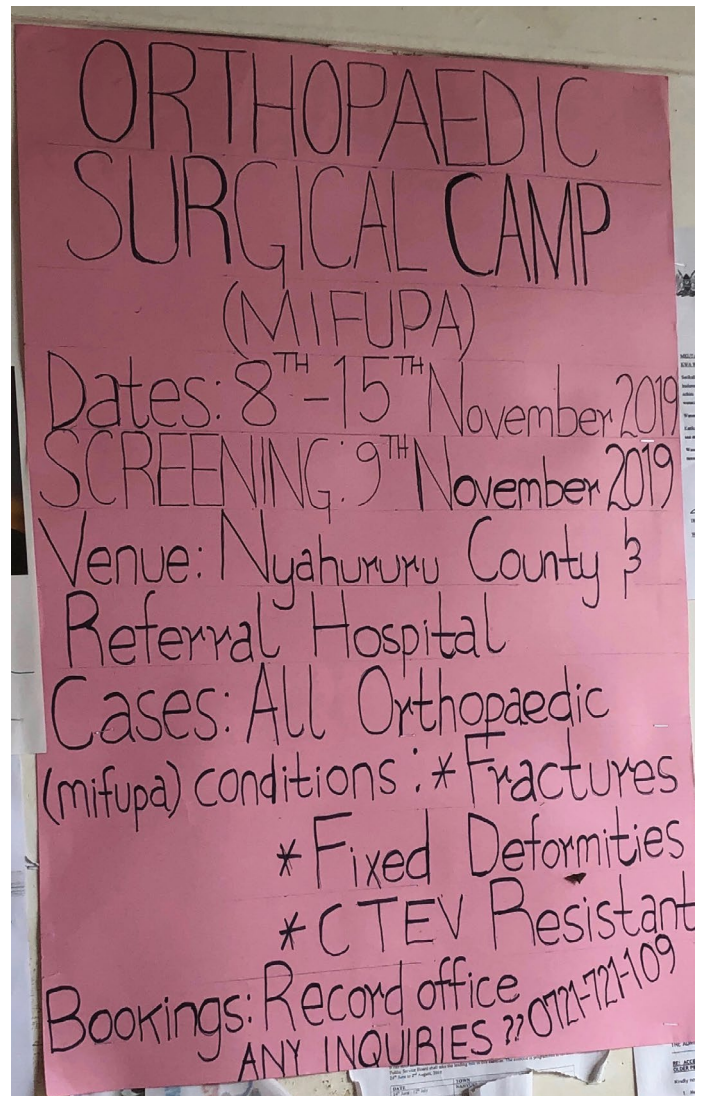 ORTHOPAEDIC
SURGICAL CAMP
(MIFUPA)
Dates: 8TH-15TH November 2019
SCREENING: 9TH November 2019
Venue: Nyahururu County &
Referral Hospital
Cases: All Orthopaedic
(mifupa) conditions: * Fractures
* Fixed Deformities
* CTEV Resistant
Bookings: Record office
ANY INQUIRIES ?? 0721-721-109